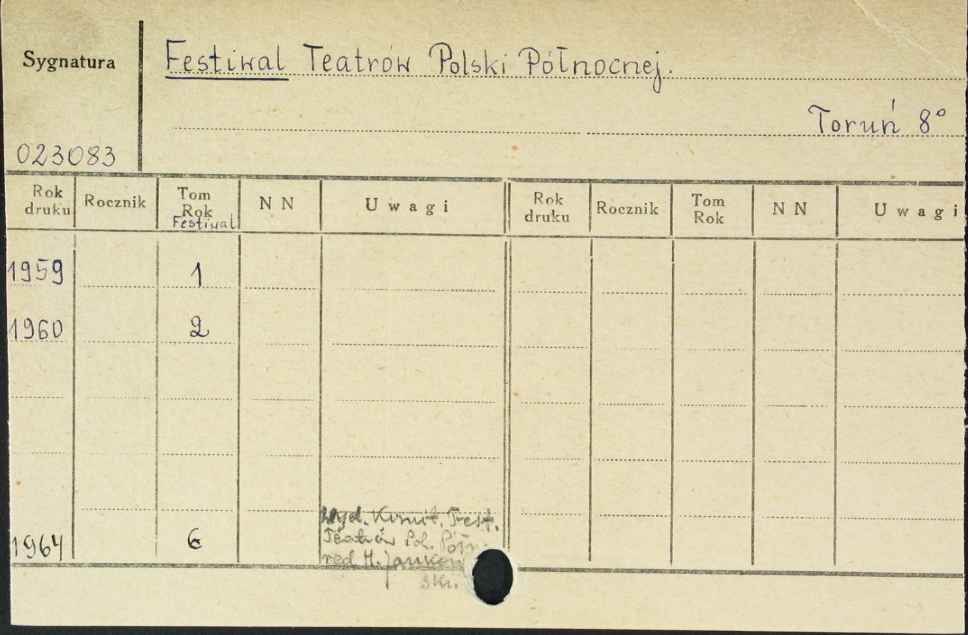 Sygnatura
Festiwal Teatrów Polski Północnej.
Toruń 8°
023083
Rok druku Rocznik Tom Rok Festiwal N N Uwagi Rok druku Rocznik Tom Rok N N Uwagi
1959 1
1960 2
1964 6
Wyd. Komit. Fest.
Teatrów Pol. Półn.
red. H.